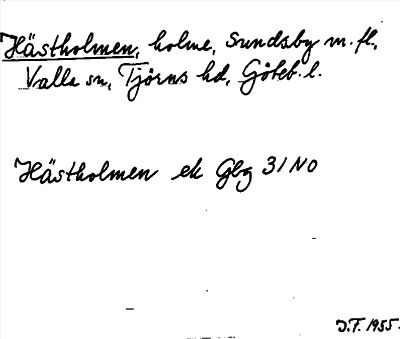 Hästholmen, holme, Sundsby m. fl.,
Valla sn, Tjörns hd, Göteb. l.
Hästholmen ek Gbg 31 NO
J.F. 1955.